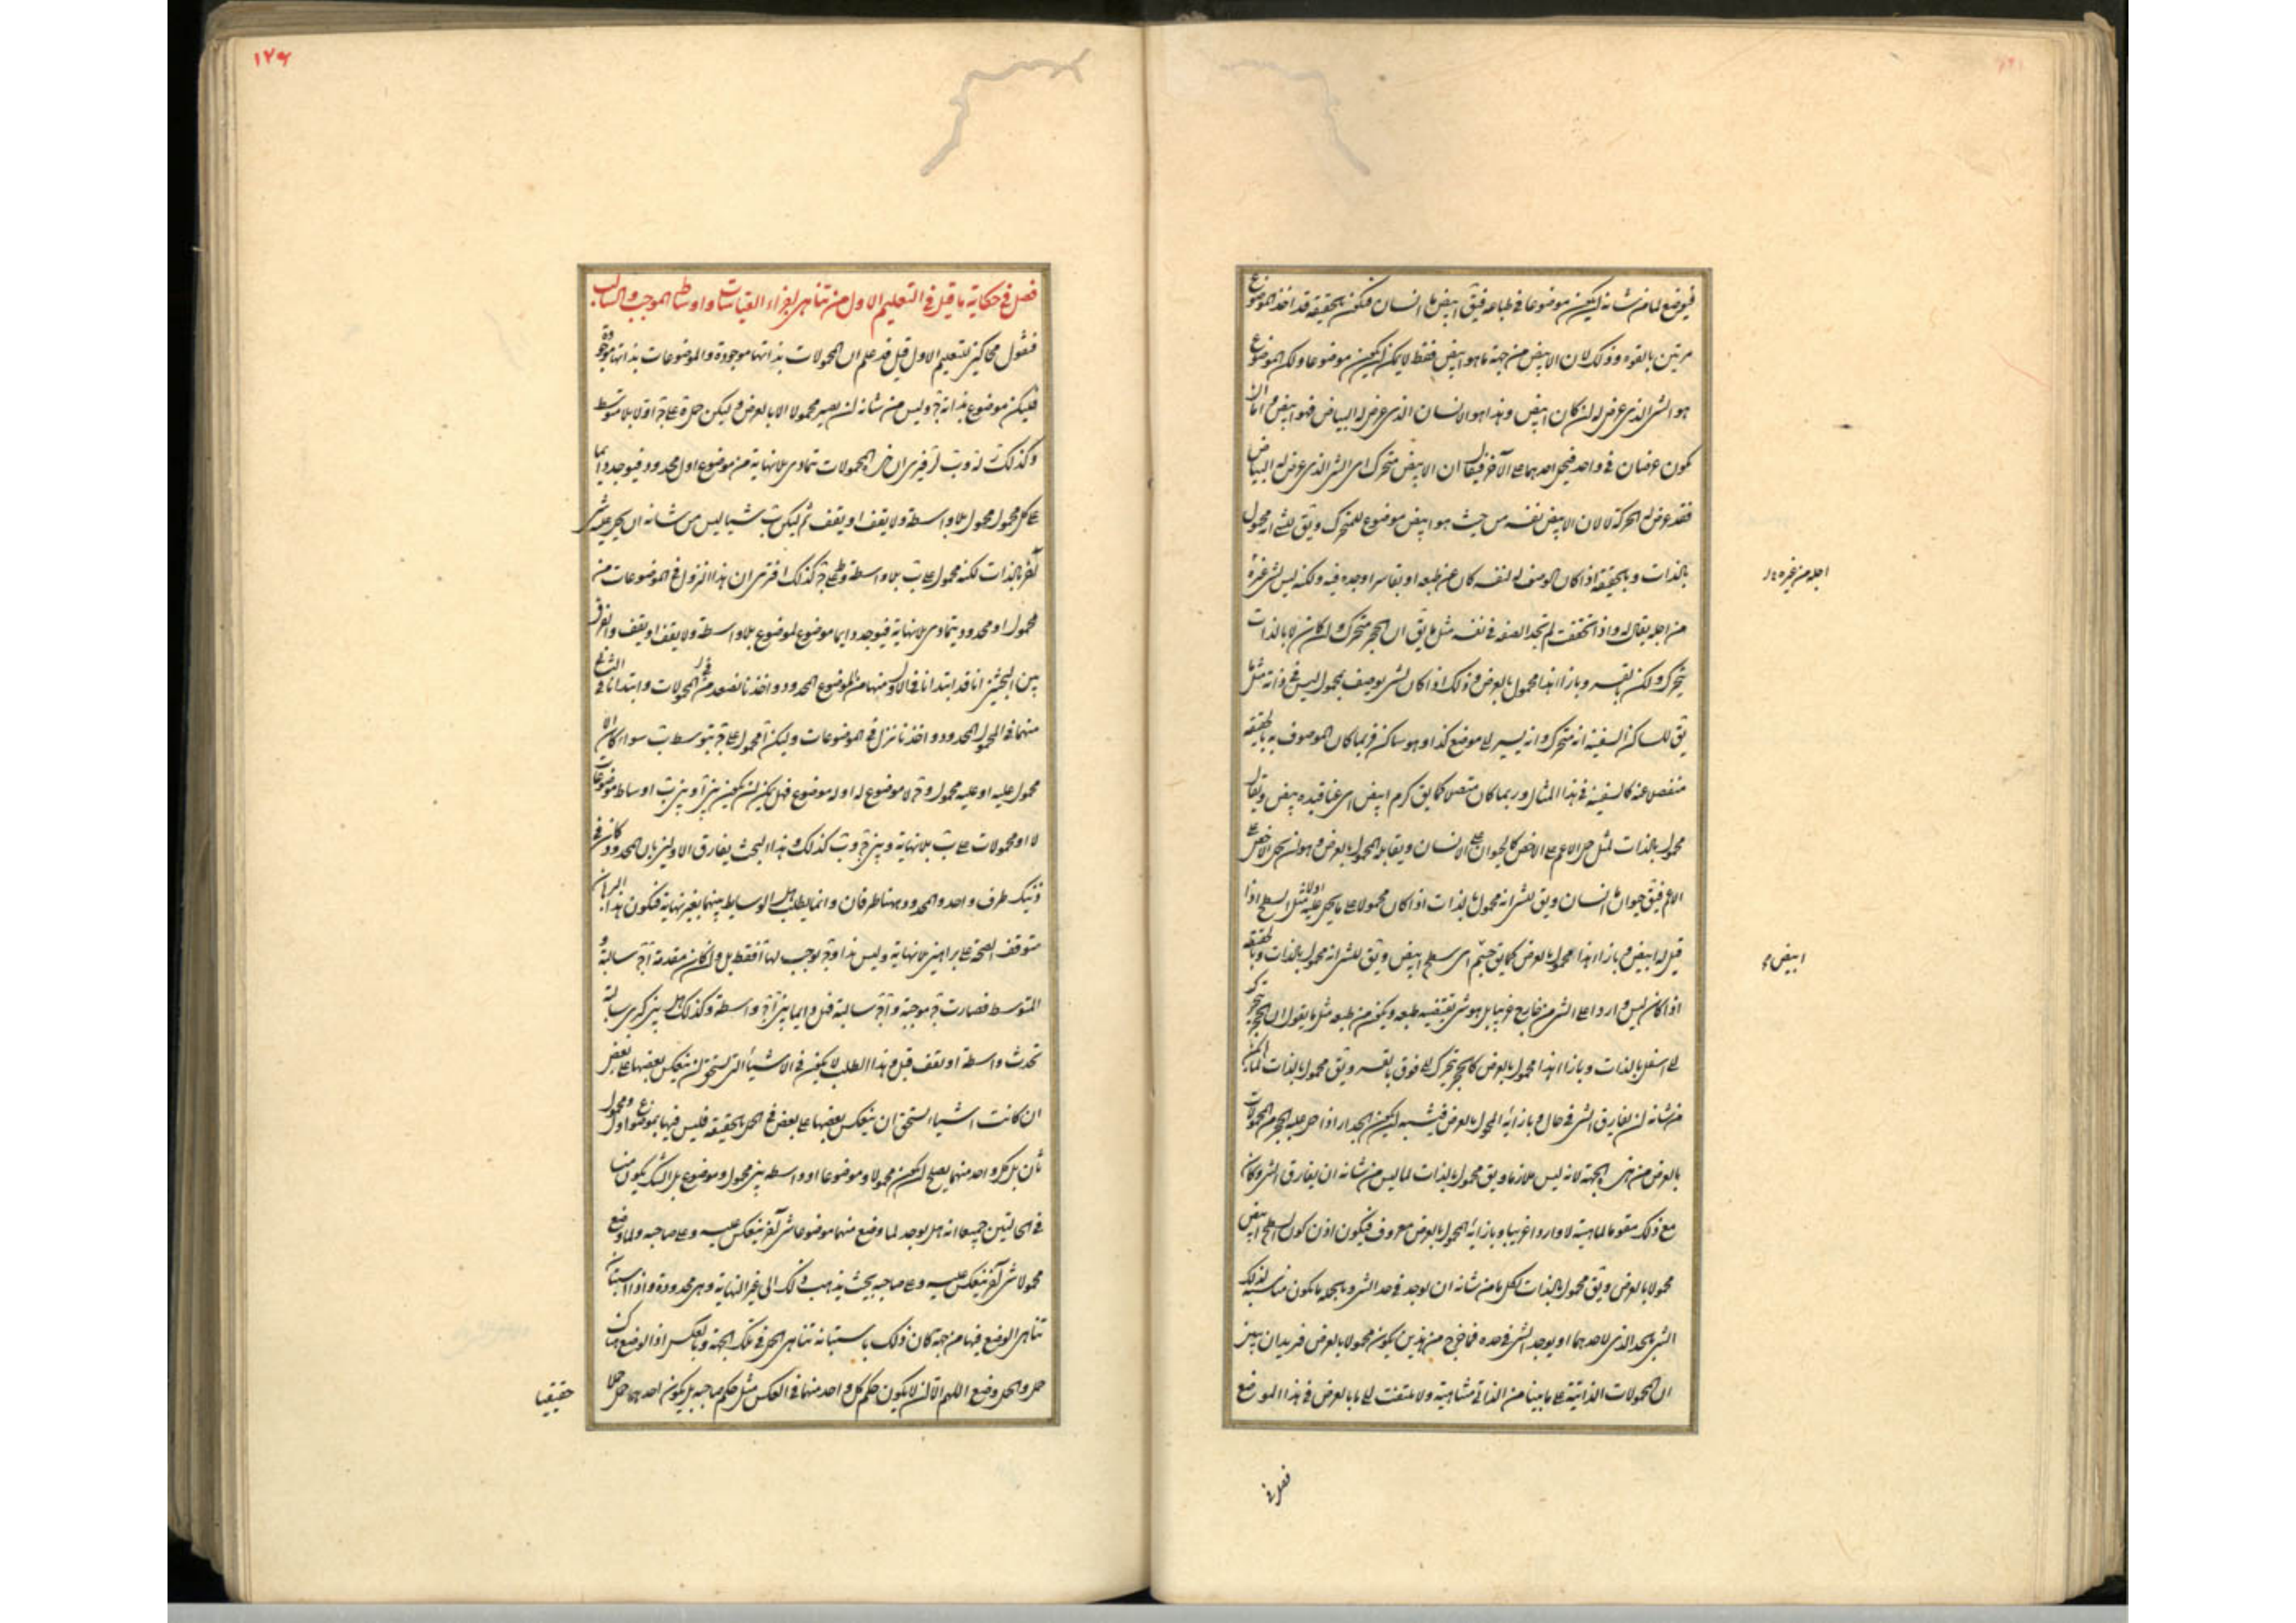 فيوضع لما من شانه ان يكون موضوعا في طباعه فيق ابيض ما انسان فيكون بالحقيقة قد اخذ الموضوع
مرتين بالقوه وذلك لان الابيض من جهة ما هو ابيض فقط لا يمكن ان يكون موضوعا ولكن الموضوع
هو الشى الذى عرض له ان كان ابيض وهذا هو الانسان الذى عرض له البياض فهو ابيض واما ان
يكون عرضان في واحد فيحمل احدهما على الآخر فيقال ان الابيض متحرك اى الشى الذى عرض له البياض
فقد عرض له الحركة لا لان الابيض نفسه من حيث هو ابيض موضوع للمتحرك ويق لشئ انه محمول
بالذات وبالحقيقة اذا كان الوصف له لنفسه كان عن طبعه او بقاسر اوجده فيه ولكنه ليس لشى غيره
اجله من غيره
من اجله يقال له واذا تحققت لم تجد الصفة في نفسه مثل ما يق ان الحجر متحرك وان كان لا بالذات
يتحرك ولكن بقسر وبازاء هذا محمول بالعرض وذلك اذا كان لشى يوصف بمحمول ليس في ذاته مثل ما
يق للساكن في السفينة انه متحرك وانه يسير الى موضع كذا وهو ساكن فربما كان الموصوف به بالحقيقة
منفصلا عنه كالسفينة في هذا المثال وربما كان متصلا كما يق كرم ابيض اى عناقيده بيض ويقال
محمول بالذات لمثل حمل الاعم على الاخص كالحيوان على الانسان ويقابله المحمول بالعرض وهو ان يحمل الاخص على
الاعم فيق حيوان ما انسان ويق لشى انه محمول بالذات اذا كان محمولا على ما يحمل عليه اولا مثل السطح اذا
قيل له ابيض وبازاء هذا المحمول بالعرض كما يق جسم اى سطحه ابيض ويق للشى انه محمول بالذات وبالحقيقة
ابيض
اذا كان ليس واردا على الشى من خارج غريبا بل هو شى يقتضيه طبعه ويكون من طبعه مثل ما يقول ان الحجر يتحرك
الى اسفل بالذات وبازاء هذا محمول بالعرض كالحجر يتحرك الى فوق بقسر ويق محمول بالذات لما لم يكن
من شانه ان يفارق الشى في حال وبازائه المحمول بالعرض فيشبه ان يكون الجدار اذا حمل عليه الحجر من المحمولات
بالعرض من هذه الجهة لانه ليس ملازما ويق محمول بالذات لما ليس من شانه ان يفارق الشى وكان
مع ذلك مقوما لماهيته لا واردا غريبا وبازائه المحمول بالعرض معروف فيكون اذن كون السطح ابيض
محمولا بالعرض ويق محمول بالذات لكل ما من شانه ان يوجد في حد الشى وبالجملة ما يكون مناسبته لذلك
الشى بالحد الذى لاحدهما او يوجد الشى في حده فما خرج من هذين يكون محمولا بالعرض فنريد ان نبين
ان المحمولات الذاتية على ما بينا من الذاتى متناهية ولا نلتفت الى ما بالعرض في هذا الموضع
فصل في
١٧٦
فصل في حكاية ما قيل في التعليم الاول من تناهى اجزاء القياسات واوساط الموجب والسالب
فنقول محاكين للتعليم الاول قيل قد علم ان المحمولات بذاتها موجودة والموضوعات بذاتها موجودة
فليكن موضوع بذاته ج وليس من شانه ان يصير محمولا الا بالعرض وليكن حمل ة على ج اولا بلا متوسط
وكذلك ز له وب لز فيرى ان هذه المحمولات تتمادى بلا نهاية من موضوع اول محدود فيوجد دايما
على كل محمول محمول بلا واسطة ولا يقف او يقف ثم ليكن ب شيا ليس من شانه ان يحمل عليه شى
آخر بالذات لكنه محمول على ب بلا واسطة وط على ج كذلك افترى ان هذا النزول في الموضوعات من
محمول اول محدود يتمادى بلا نهاية فيوجد دايما موضوع لموضوع بلا واسطة ولا يقف او يقف والفرق
بين البحثين انا قد ابتدانا في الاول منهما من الموضوع المحدود واخذنا نصعد في المحمولات وابتدانا في الثانى
منهما في المحمول المحدود واخذنا ننزل في الموضوعات وليكن آ محمولا على ج بتوسط ب سواء كان آ لا
محمول عليه او عليه محمول وج لا موضوع له او له موضوع فهل يمكن ان يكون بين آ وبين ب اوساط موضوعات
لا او محمولات على ب بلا نهاية وبين ج وب كذلك وهذا البحث يفارق الاولين بان المحدود كان في
ذينك طرف واحد والمحدود ههنا طرفان وانما يطلب هل الوسايط بينهما بغير نهاية فيكون هذا البرهان
متوقف الصحة على براهين بلا نهاية وليس هذا وج يوجب لها آ فقط بل وان كان مقدمة آج سالبة و
المتوسط فصارت ج موجبة وآج سالبة فهل دايما بين آج واسطة وكذلك هل بين كبرى سالبة
تحدث واسطة او يقف قيل وهذا الطلب لا يكون في الاشياء التى تستحق ان ينعكس بعضها على بعض
ان كانت اشياء تستحق ان ينعكس بعضها على بعض في الحمل بالحقيقة فليس فيها موضوع اول ومحمول
ثان بل كل واحد منهما يصلح ان يكون محمولا وموضوعا او واسطة بين محمول وموضوع بل الشك يكون منا
في الحالتين جميعا انه هل يوجد لما وضع منهما موضوعا شى آخر ينعكس عليه وعلى صاحبه ولما وضع
محمولا شى آخر ينعكس عليه وعلى صاحبه بحيث يذهب ذلك الى غير النهاية وهى محدودة واذا استبان
تناهى الوضع فيها من جهة كان ذلك باستبانة تناهى الحمل في تلك الجهة وبالعكس اذ الوضع هناك
حمل والحمل وضع اللهم الا ان لا يكون حكم كل واحد منهما في العكس مثل حكم صاحبه بل يكون احدهما حمل حملا
حقيقيا